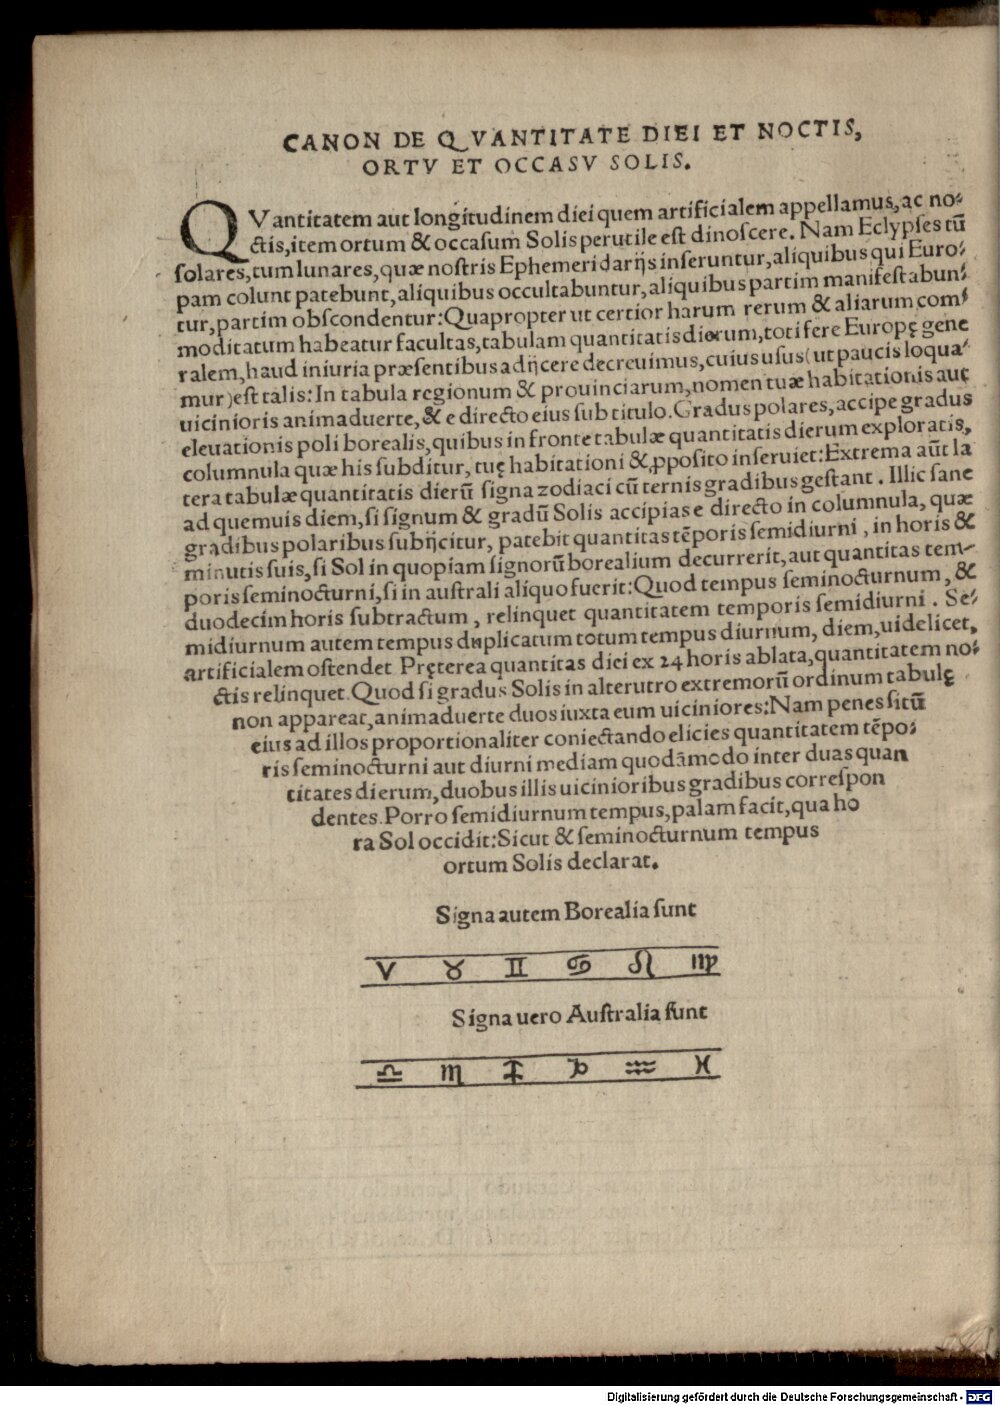 CANON DE QVANTITATE DIEI ET NOCTIS,
ORTV ET OCCASV SOLIS.
QVantitatem aut longitudinem diei quem artificialem appellamus, ac no⸗
ctis, item ortum & occaſum Solis perutile eſt dinoſcere. Nam Eclypſes tū
ſolares, tum lunares, quæ noſtris Ephemeridarijs inſeruntur, aliquibus qui Euro⸗
pam colunt patebunt, aliquibus occultabuntur, aliquibus partim manifeſtabun⸗
tur, partim obſcondentur: Quapropter ut certior harum rerum & aliarum com⸗
moditatum habeatur facultas, tabulam quantitatis dierum, toti fere Europę gene
ralem, haud iniuria præſentibus adijcere decreuimus, cuius uſus (ut paucis loqua⸗
mur) eſt talis: In tabula regionum & prouinciarum, nomen tuæ habitationis aut
uicinioris animaduerte, & e directo eius ſub titulo. Gradus polares, accipe gradus
eleuationis poli borealis, quibus in fronte tabulæ quantitatis dierum exploratis,
columnula quæ his ſubditur, tuę habitationi & ꝓpoſito inſeruiet: Extrema aūt la
tera tabulæ quantitatis dierū ſigna zodiaci cū ternis gradibus geſtant. Illic ſane
ad quemuis diem, ſi ſignum & gradū Solis accipias e directo in columnula, quæ
gradibus polaribus ſubijcitur, patebit quantitas tēporis ſemidiurni, in horis &
minutis ſuis, ſi Sol in quopiam ſignorū borealium decurrerit, aut quantitas tem⸗
poris ſeminocturni, ſi in auſtrali aliquo fuerit: Quod tempus ſeminocturnum, &
duodecim horis ſubtractum, relinquet quantitatem temporis ſemidiurni. Se⸗
midiurnum autem tempus duplicatum totum tempus diurnum, diem, uidelicet,
artificialem oſtendet Pręterea quantitas diei ex 24 horis ablata, quantitatem no⸗
ctis relinquet. Quod ſi gradus Solis in alterutro extremorū ordinum tabulę
non appareat, animaduerte duos iuxta eum uiciniores: Nam penes ſitū
eius ad illos proportionaliter coniectando elicies quantitatem tēpo⸗
ris ſeminocturni aut diurni mediam quodāmodo inter duas quan
titates dierum, duobus illis uicinioribus gradibus correſpon
dentes. Porro ſemidiurnum tempus, palam facit, qua ho
ra Sol occidit: Sicut & ſeminocturnum tempus
ortum Solis declarat.
Signa autem Borealia ſunt
♈ ♉ ♊ ♋ ♌ ♍
Signa uero Auſtralia ſunt
♎ ♏ ♐ ♑ ♒ ♓
Digitalisierung gefördert durch die Deutsche Forschungsgemeinschaft - DFG